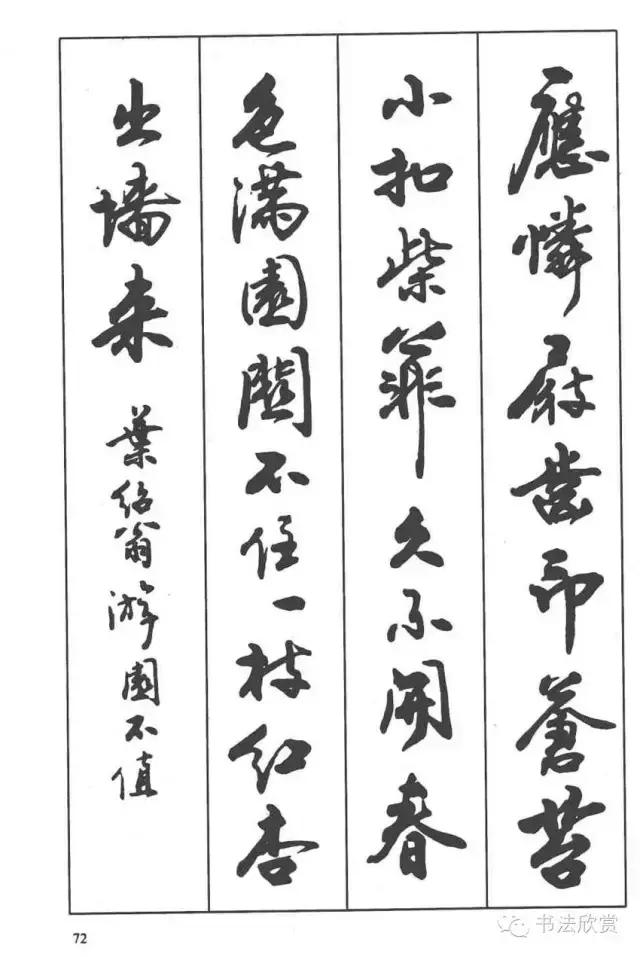 應憐屐齒印蒼苔
小扣柴扉久不開春
色滿園關不住一枝紅杏
出墻来
葉紹翁游園不值
72
书法欣赏